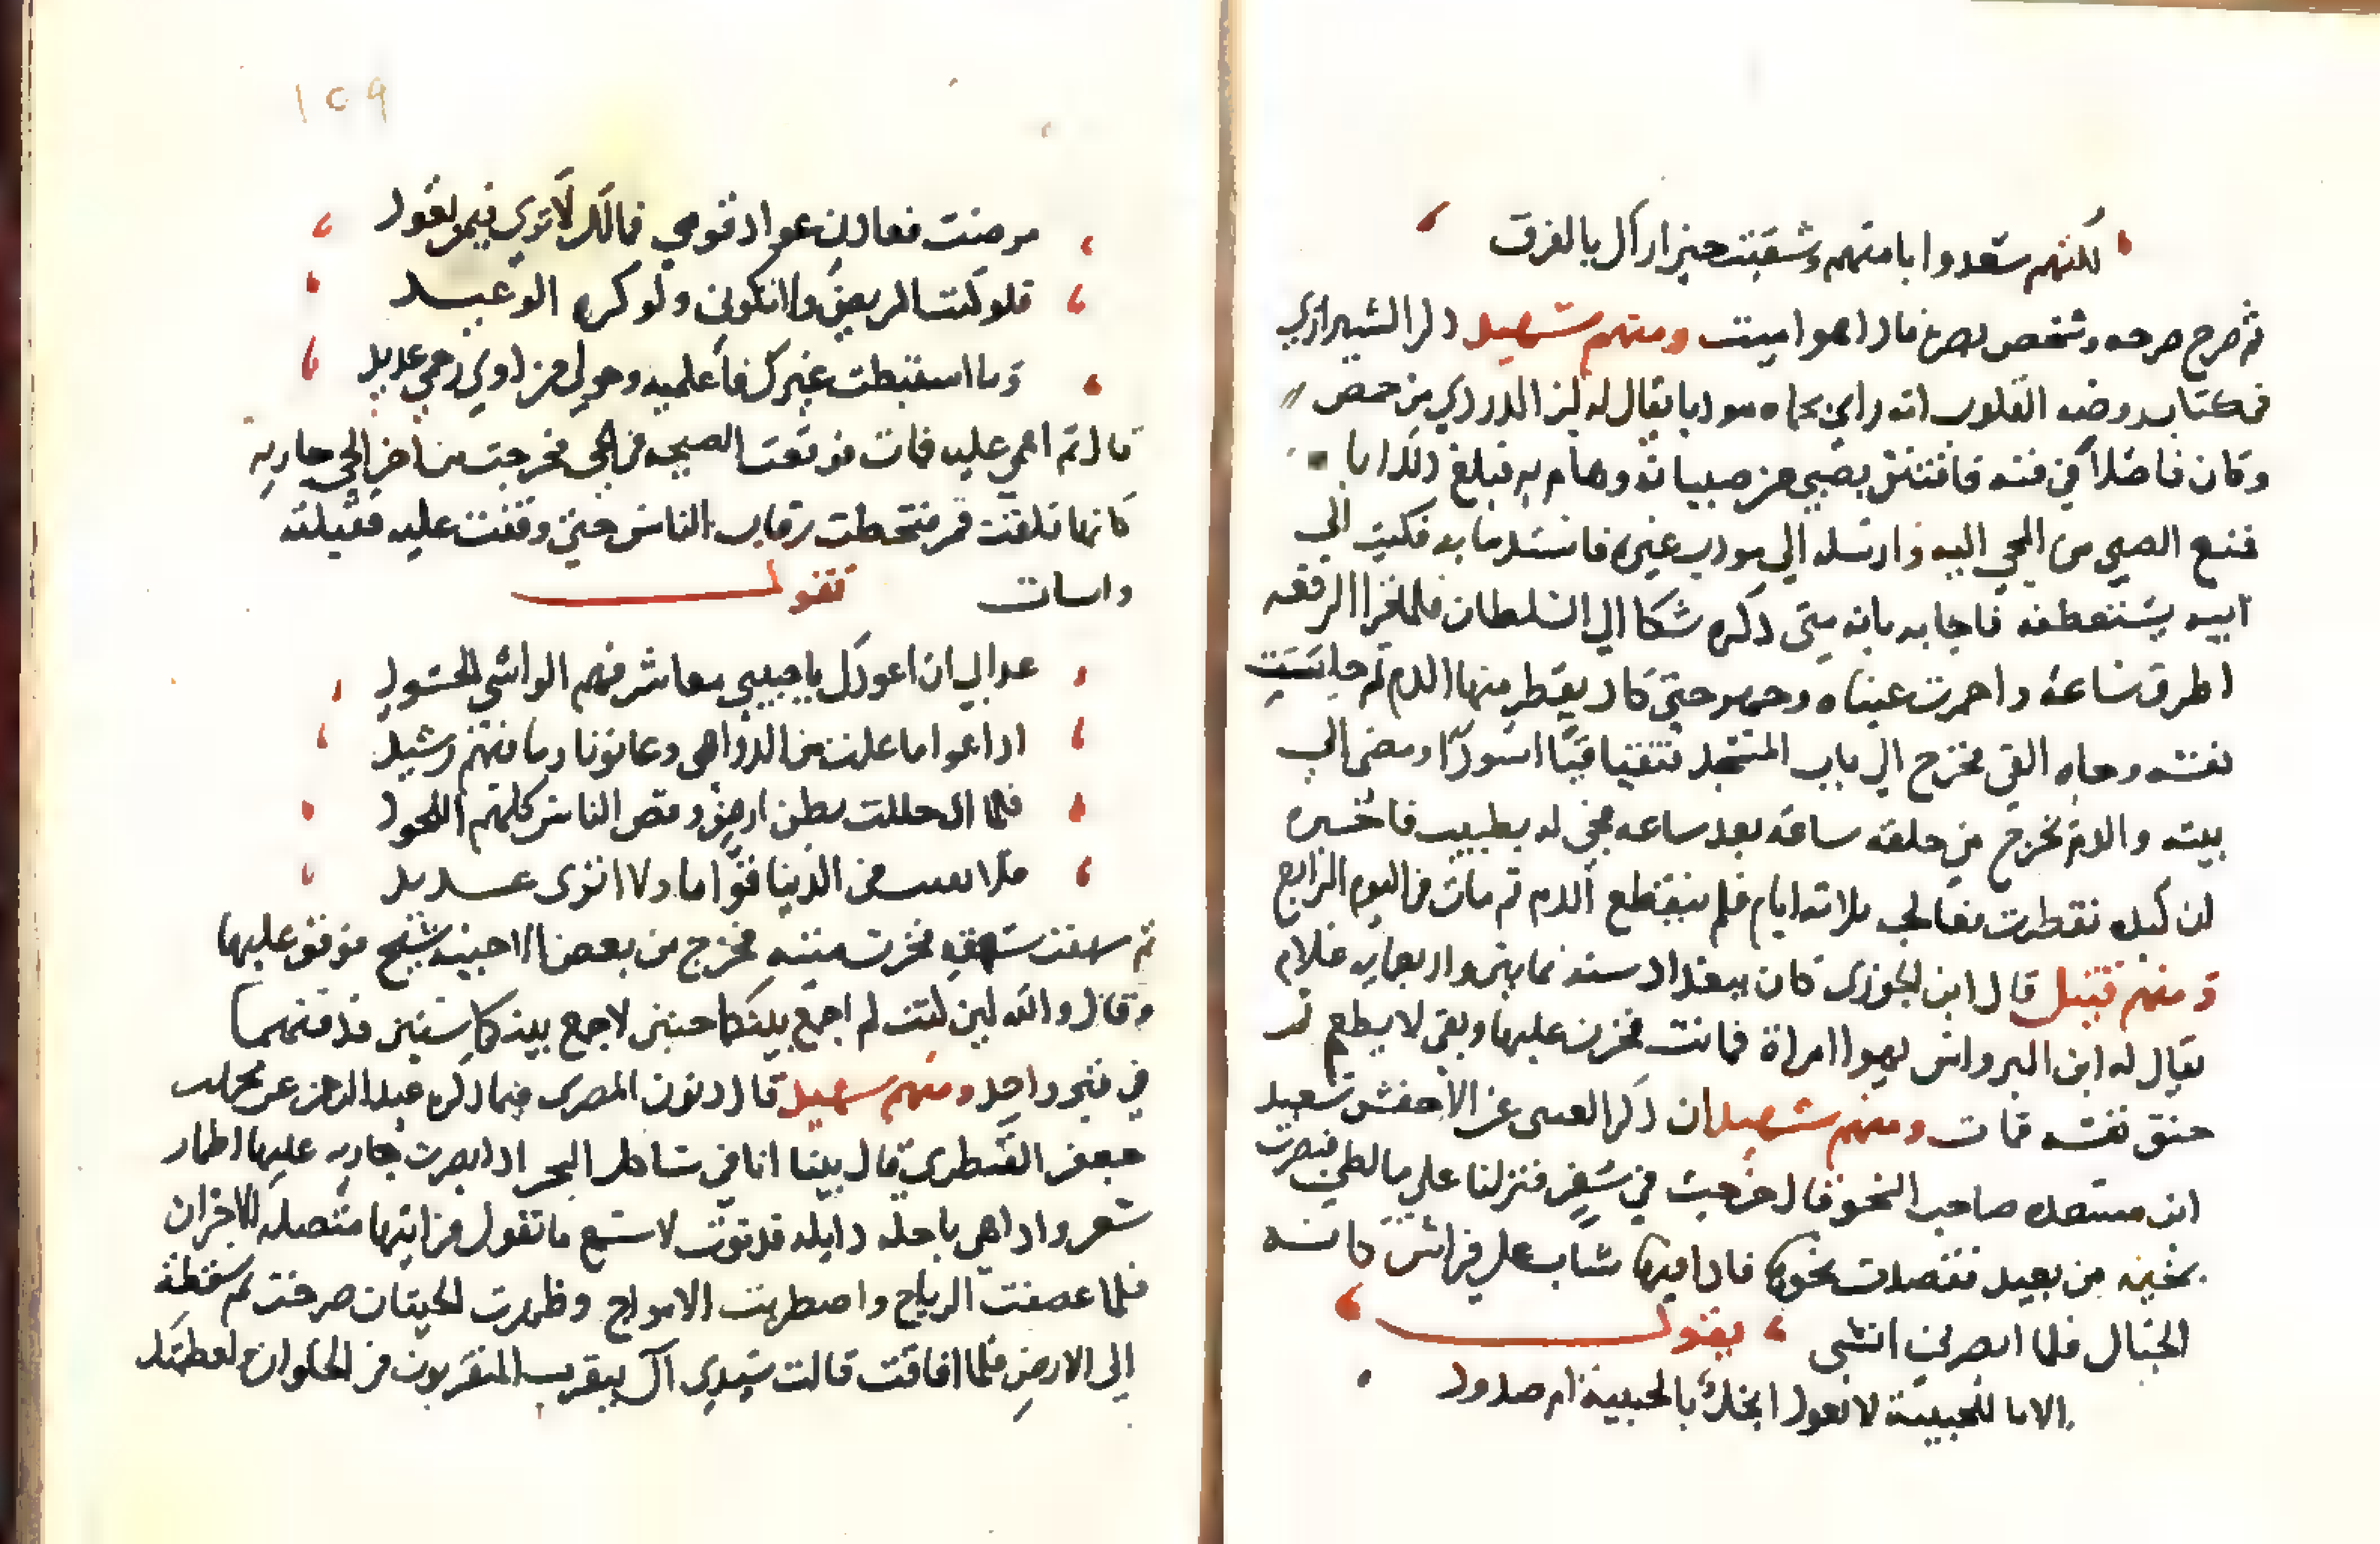 لكنهم سعدوا بامنهم وشقيت حين اراك بالفرق
ثم صرخ صرخه وشخص بصره فاذا هو ميت ومنهم شهيد ذكر الشيرازي
في كتاب روضه القلوب انه راي بحماه مودبا يقال له ابن الدوري من حمص
وكان فاضلا في فنه فافتتن بصبي من صبيانه وهام به فبلغ ذلك ابا
فمنع الصبي من المجي اليه وارسله الي مودب غيره فاشتد ما به فكتب الي
ابيه يستعطفه فاجابه بانه متى ذكره شكا الي السلطان فلما قرا الرقعه
اطرق ساعة واحمرت عيناه ووجهه حتى كاد يقطر منها الدم ثم جاشت
نفسه وجاه القي فخرج الي باب المسجد فتقيا قيا اسودا ومضى الي
بيته والدم يخرج من حلقه ساعه بعد ساعه فجي له بطبيب فاخبره
ان كبده تقطرت فعالجه ثلاثة ايام فلم ينقطع الدم ثم مات في اليوم الرابع
ومنهم قتيل قال ابن الجوزي كان ببغداد سنه ثمانين واربعمايه غلام
يقال له ابن الرواس يهوا امراة فماتت فحزن عليها وبقي لا يطعم ثم
خنق نفسه فمات ومنهم شهيدان ذكر العتبي عن الاخفش سعيد
ابن مسعده صاحب النحو قال خرجت في سفر فنزلنا على ما لطي فبصرت
بخيمه من بعيد فقصدت نحوها فاذا فيها شاب علي فراش كانه
الخيال فلما ابصرني انشى يقول
الا ما للحبيبة لا تعود ابخل بالحبيبة ام صدود
١٥٩
مرضت فعادني عواد قومي فمالك لا تري فيمن يعود
فلو كنت المريض ولا تكوني ولو كره الوعيد
وما استبطات غيرك فاعلميه وحولي من ذوي رحمي عديد
قال ثم اغمي عليه فمات فوقعت الصيحه في الحي فخرجت من اخر الحي جاريه
كانها فلقت قمر فتخطت رقاب الناس حتي وقفت عليه فقبلته
وانسات تقول
عداني ان اعودك يا حبيبي معاشر فيهم الواشي الحسود
اذاعوا ما علمت من الدواهي وعابونا وما فيهم رشيد
فلما ان حللت بطن ارض وقصر الناس كلهم اللحود
فلا بقيت في الدنيا فواقا ولا اثرى عديد
ثم شهقت شهقه فخرت ميته فخرج من بعض الاخبيه شيخ فوقف عليهما
وقال والله لين كنت لم اجمع بينكما حيين لاجمع بينكما ميتين فدفنهما
في قبر واحد ومنهم شهيد قال ذنون المصري فيما ذكره عبد الرحمن عن محمد بن
جعفر القنطري قال بينا انا في ساحل البحر اذ ابصرت جاريه عليها اطمار
شعر واذا هي ناحله ذابله فدنوت لاسمع ما تقول فرايتها متصله الاحزان
فلما عصفت الرياح واضطربت الامواج وظهرت الحيتان صرخت ثم سقطت
الي الارض فلما افاقت قالت سيدي لك يتقرب المتقربون في الخلوات لعظمتك